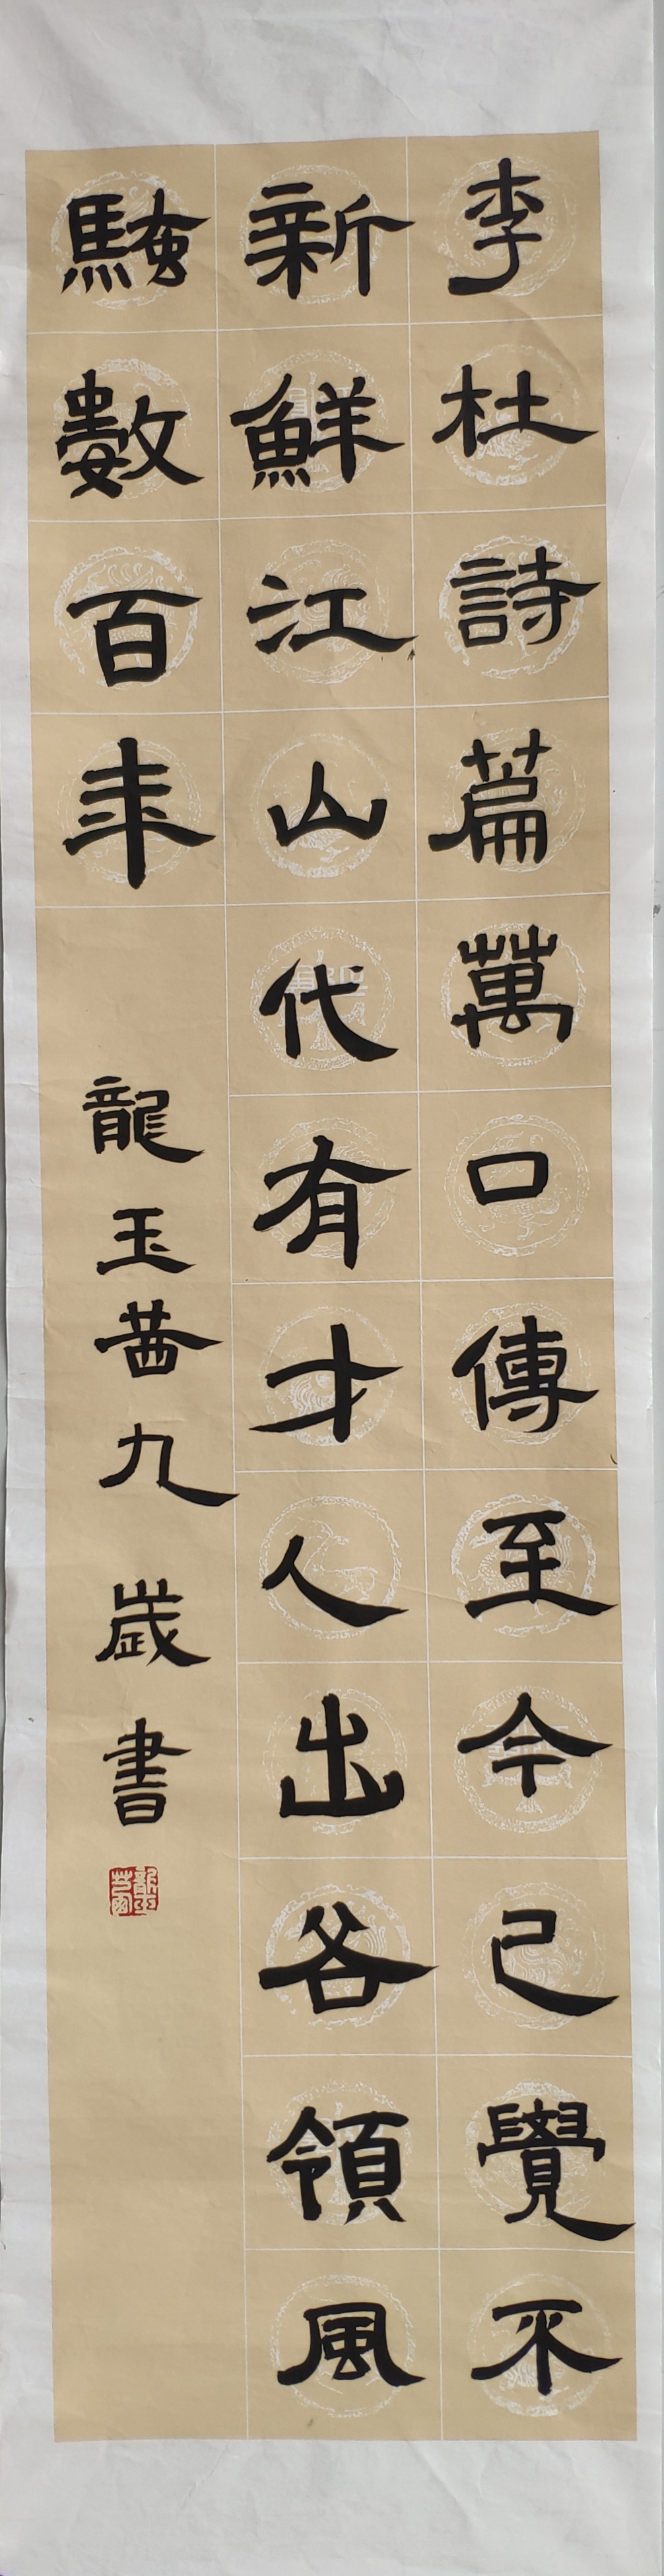 李杜詩篇萬口傳至今已覺不
新鮮江山代有才人出各領風
騷數百年
龍玉茜九歲書